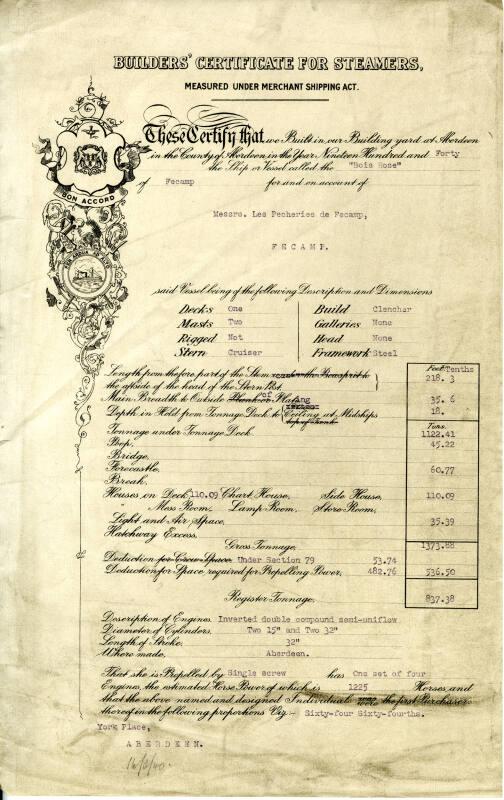 BUILDERS' CERTIFICATE FOR STEAMERS,
MEASURED UNDER MERCHANT SHIPPING ACT.
These Certify that we Built in our Building yard at Aberdeen
in the County of Aberdeen in the Year Nineteen Hundred and Forty
the Ship or Vessel called the "Bois Rose"
of Fecamp for and on account of
BON ACCORD
Messrs. Les Pecheries de Fecamp,
FECAMP.
said Vessel being of the following Description and Dimensions
Decks One Build Clencher
Masts Two Galleries None
Rigged Not Head None
Stern Cruiser Framework Steel
Feet Tenths
Length from the fore part of the Stem under the Bowsprit to
the aftside of the head of the Stern Post. 218. 3
Main Breadth to Outside Plank or of Plating 35. 6
Depth in Hold from Tonnage Deck to Ceiling at Midships 18.
top of tank
Tons.
Tonnage under Tonnage Deck. 1122.41
Poop. 45.22
Bridge.
Forecastle. 60.77
Break.
Houses on Deck 110.09 Chart House, Side House, 110.09
" Mess Room. Lamp Room. Store Room,
Light and Air Space. 35.39
Hatchway Excess.
Gross Tonnage 1373.88
Deduction for Crew Space. Under Section 79 53.74
Deduction for Space required for Propelling Power, 482.76 536.50
Register Tonnage. 837.38
Description of Engines. Inverted double compound semi-uniflow
Diameter of Cylinders. Two 15" and Two 32"
Length of Stroke. 32"
Where made, Aberdeen.
That she is Propelled by Single screw has One set of four
Engines, the estimated Horse Power of which is 1225 Horses, and
that the above named and designed Individuals were the first Purchasers
thereof in the following proportions Viz:- Sixty-four Sixty-fourths.
York Place,
ABERDEEN.